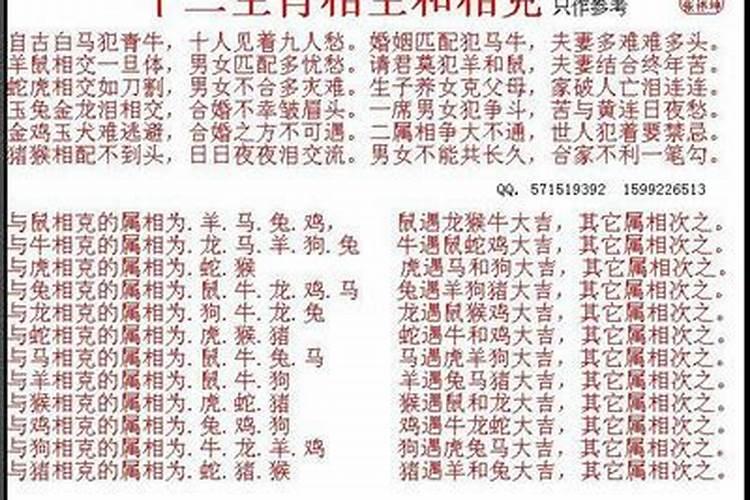 十二生肖相生和相克 只作参考
自古白马犯青牛，十人见着九人愁。婚姻匹配犯马牛，夫妻多难难多头。
羊鼠相交一旦体，男女匹配多忧愁。请君莫犯羊和鼠，夫妻结合终年苦。
蛇虎相交如刀割，男女不合多灾难。生子养女克父母，家破人亡泪连连。
玉兔金龙泪相交，合婚不幸皱眉头。一席男女犯争斗，苦与黄连日夜愁。
金鸡玉犬难逃避，合婚之方不可遇。二属相争大不通，世人犯着要禁忌。
猪猴相配不到头，日日夜夜泪交流。男女不能共长久，合家不利一笔勾。
QQ. 571519392 1599226513
与鼠相克的属相为. 羊. 马. 兔. 鸡,
与牛相克的属相为. 龙. 马. 羊. 狗. 兔
与虎相克的属相为. 蛇. 猴
与兔相克的属相为. 鼠. 牛. 龙. 鸡. 马
与龙相克的属相为. 狗. 牛. 龙. 兔
与蛇相克的属相为. 虎. 猴. 猪
与马相克的属相为. 鼠. 牛. 兔. 马
与羊相克的属相为. 鼠. 牛. 狗
与猴相克的属相为. 虎. 蛇. 猪
与鸡相克的属相为. 兔. 鸡. 狗
与狗相克的属相为. 牛. 龙. 羊. 鸡
与猪相克的属相为. 蛇. 猪. 猴
鼠遇龙猴牛大吉，其它属相次之。
牛遇鼠蛇鸡大吉，其它属相次之。
虎遇马和狗大吉，其它属相次之。
兔遇羊狗猪大吉，其它属相次之。
龙遇鼠猴鸡大吉，其它属相次之。
蛇遇牛和鸡大吉，其它属相次之。
马遇虎羊狗大吉，其它属相次之。
羊遇兔马猪大吉，其它属相次之。
猴遇鼠和龙大吉，其它属相次之。
鸡遇牛龙蛇大吉，其它属相次之。
狗遇虎兔马大吉，其它属相次之。
猪遇羊和兔大吉，其它属相次之。